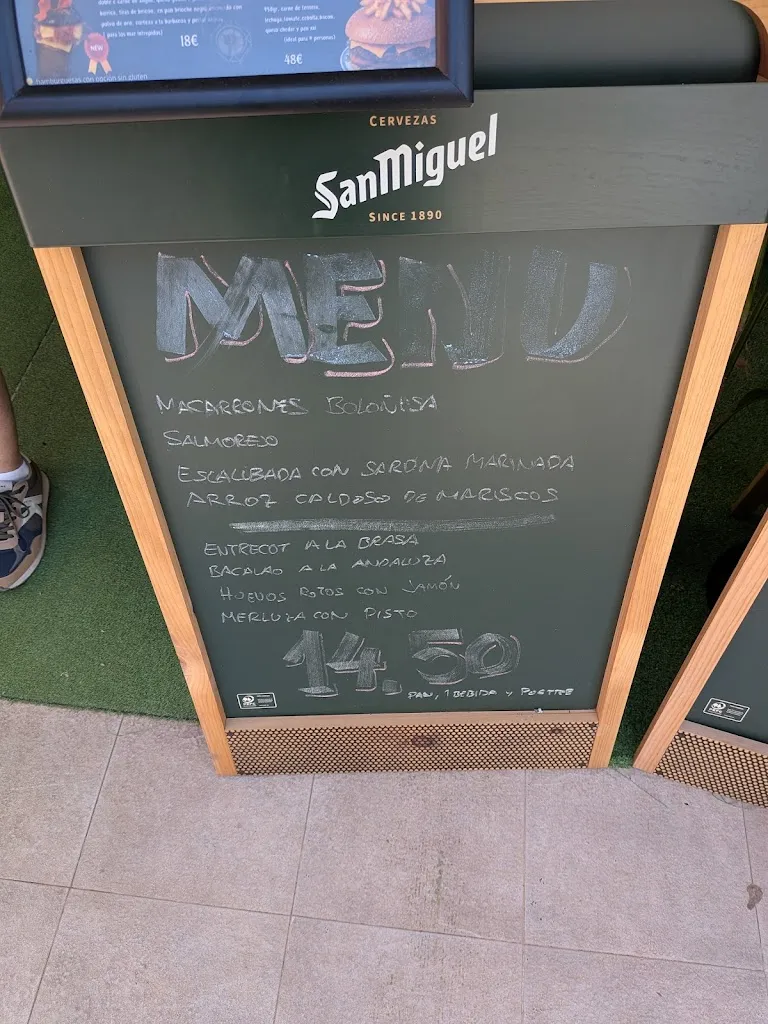 18€
48€
hamburguesas con opción sin gluten
CERVEZAS
SanMiguel
SINCE 1890
MENU
MACARRONES BOLOÑESA
SALMOREJO
ESCALIBADA CON SARDINA MARINADA
ARROZ CALDOSO DE MARISCOS
ENTRECOT A LA BRASA
BACALAO A LA ANDALUZA
HUEVOS ROTOS CON JAMÓN
MERLUZA CON PISTO
14.50
PAN, 1 BEBIDA Y POSTRE